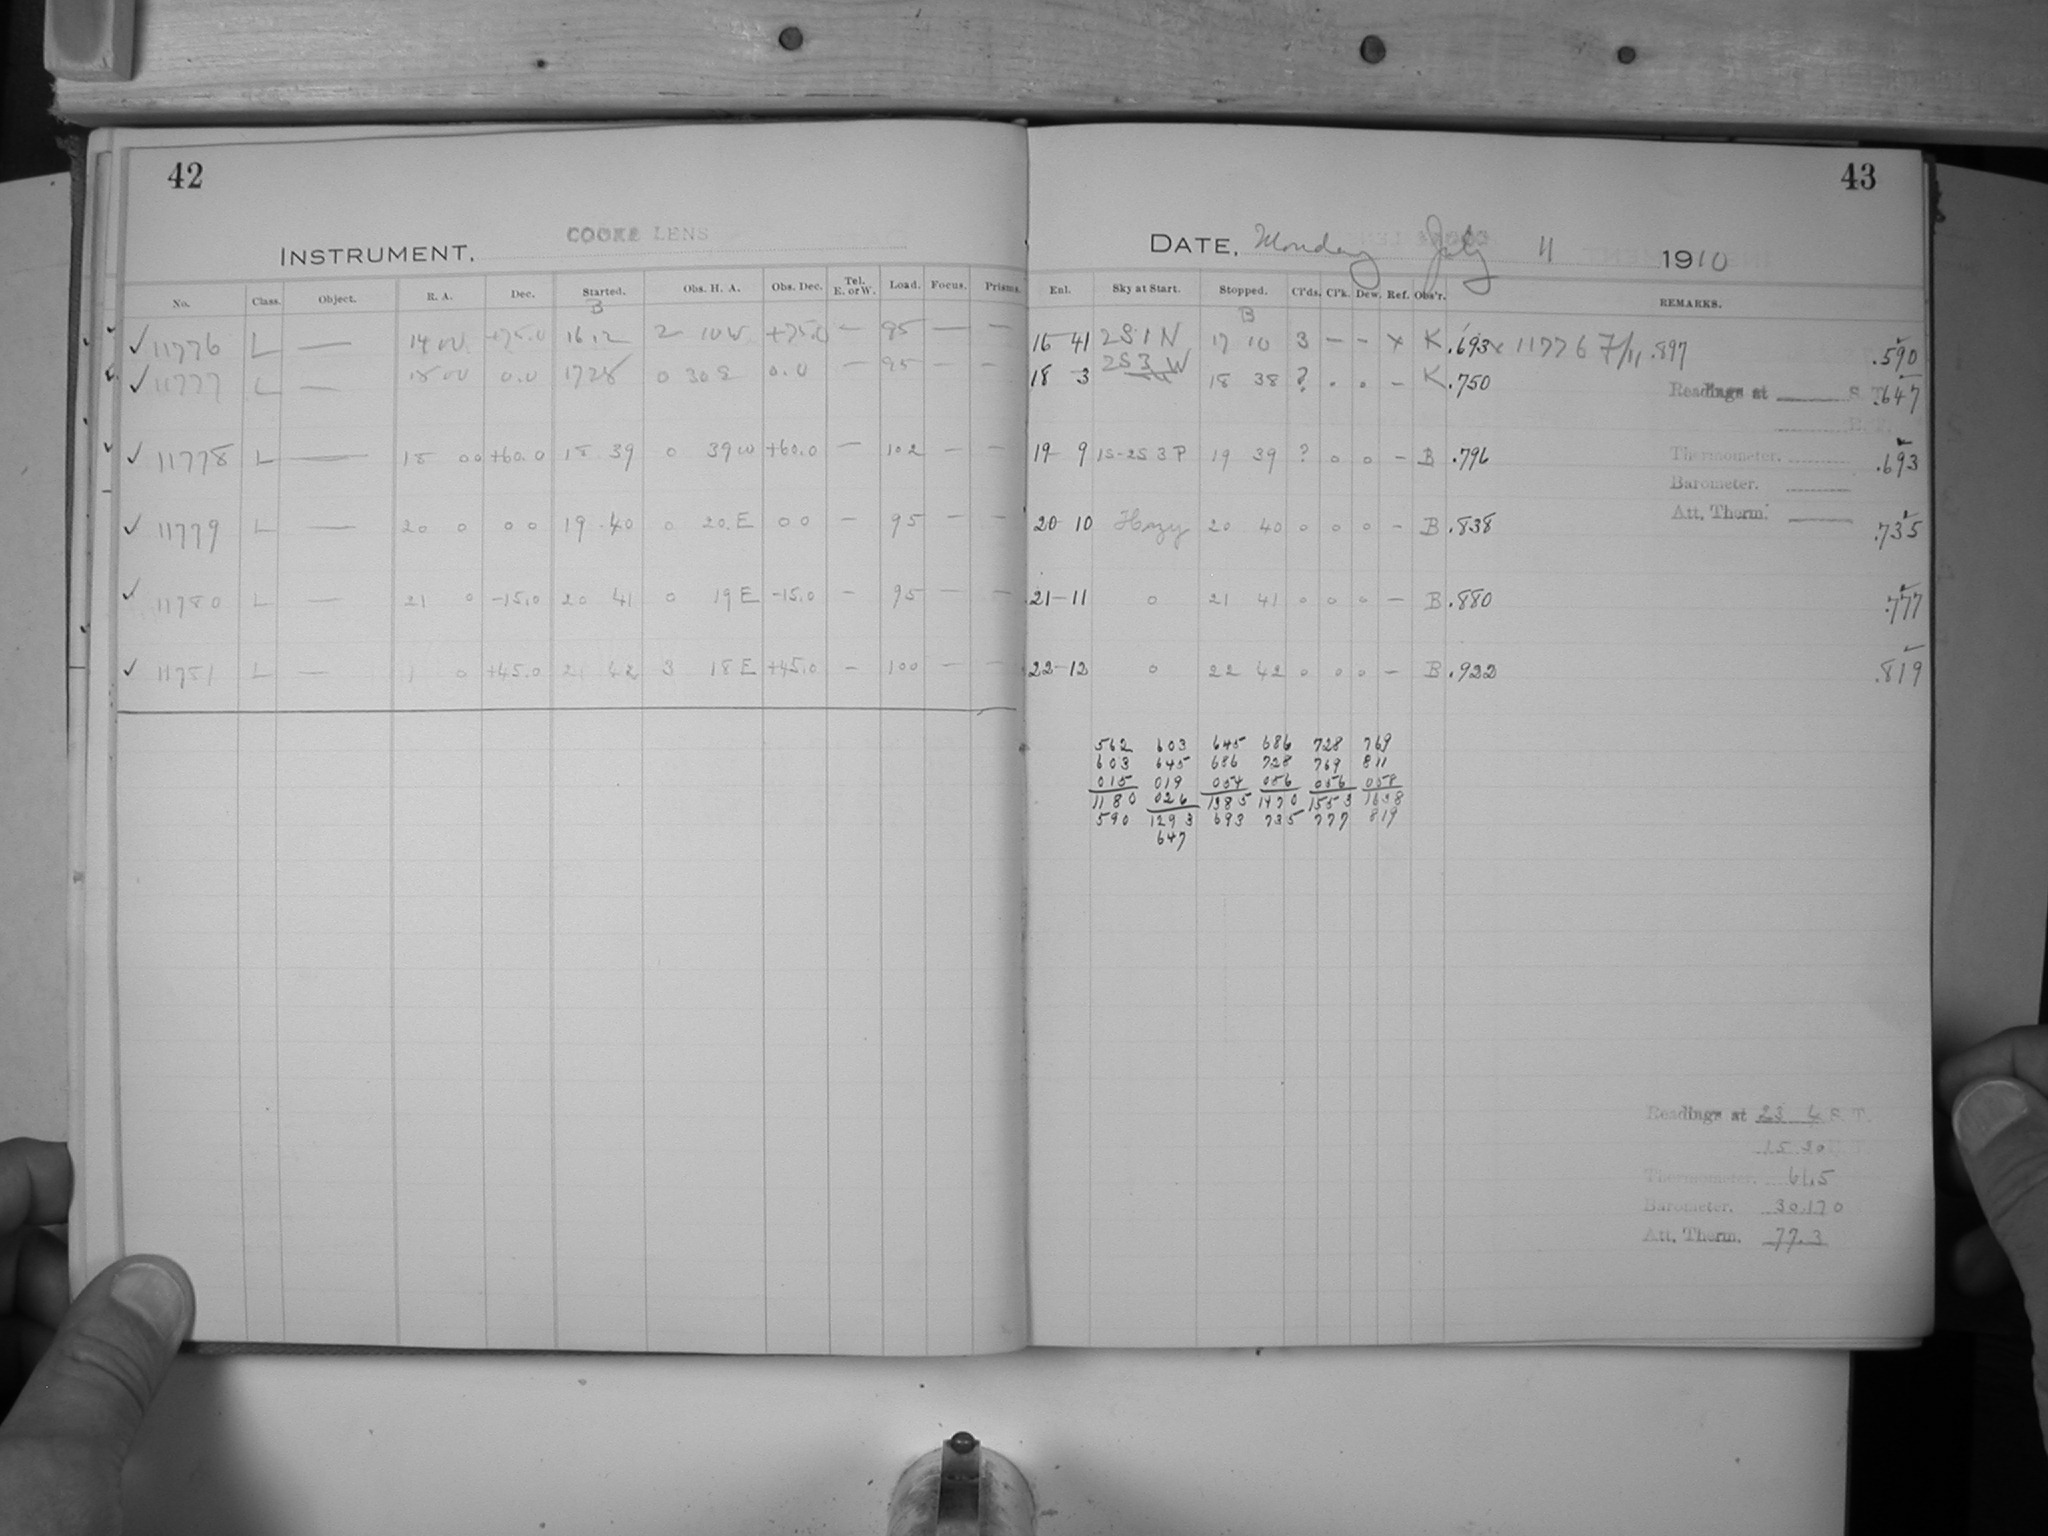 42
COOKE LENS
INSTRUMENT.
No. Class. Object. R. A. Dec. Started. Obs. H. A. Obs. Dec. Tel. E. or W. Load. Focus. Prisms.
B
✓ 11776 L — 14 00 +75.0 16 12 2 10 W +75.0 — 95 — —
✓ 11777 L — 18 00 0.0 17 28 0 30 E 0.0 — 95 — —
✓ 11778 L — 18 00 +60.0 18 39 0 39 W +60.0 — 102 — —
✓ 11779 L — 20 0 0 0 19 40 0 20 E 0 0 — 95 — —
✓ 11780 L — 21 0 -15.0 20 41 0 19 E -15.0 — 95 — —
✓ 11781 L — 1 0 +45.0 21 42 3 18 E +45.0 — 100 — —
43
DATE. Monday July 11 1910
Enl. Sky at Start. Stopped. Cl'ds. Cl'k. Dew. Ref. Obs'r. REMARKS.
B
16 41 2S 1 N 17 10 3 — — x K .693 x 11776 7/11 .897 .590
18 3 2S 3 W 18 38 ? . . – K .750 Readings at S. T. .647
19 9 1S-2S 3 P 19 39 ? 0 0 – B .796 Thermometer. .693
Barometer.
20 10 Hazy 20 40 0 0 0 – B .838 Att. Therm. .735
21-11 0 21 41 0 0 0 – B .880 .777
22-12 0 22 42 0 0 0 – B .922 .819
562 603 645 686 728 769
603 645 686 728 769 811
015 019 054 056 056 058
1180 026 1385 1470 1553 1638
590 1293 693 735 777 819
647
Readings at 23 4 S. T.
15 30
Thermometer. 61.5
Barometer. 30.170
Att. Therm. 77.3